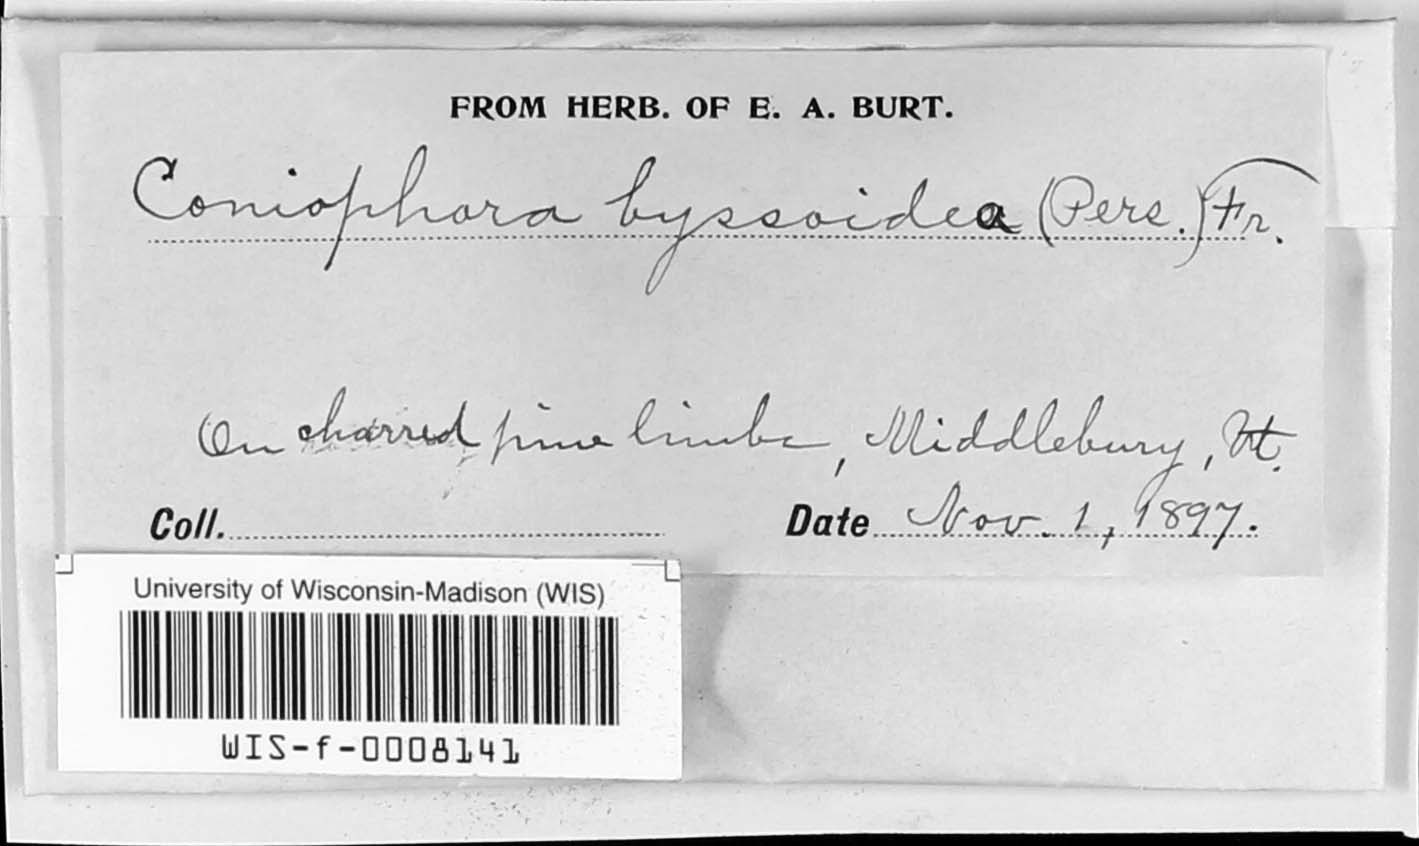 FROM HERB. OF E. A. BURT.
Coniophora byssoidea (Pers.) Fr.
On charred pine limbs, Middlebury, Vt.
Coll.
Date Nov. 1, 1897.
University of Wisconsin-Madison (WIS)
WIS-f-0008141